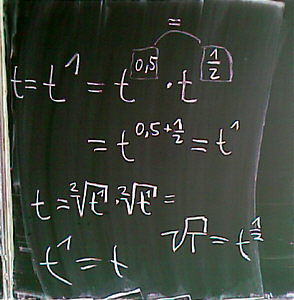 =
t = t¹ = t^0,5 · t^1/2
= t^(0,5 + 1/2) = t¹
t = ²√t¹ · ²√t¹ =
√r = t^1/2
t¹ = t